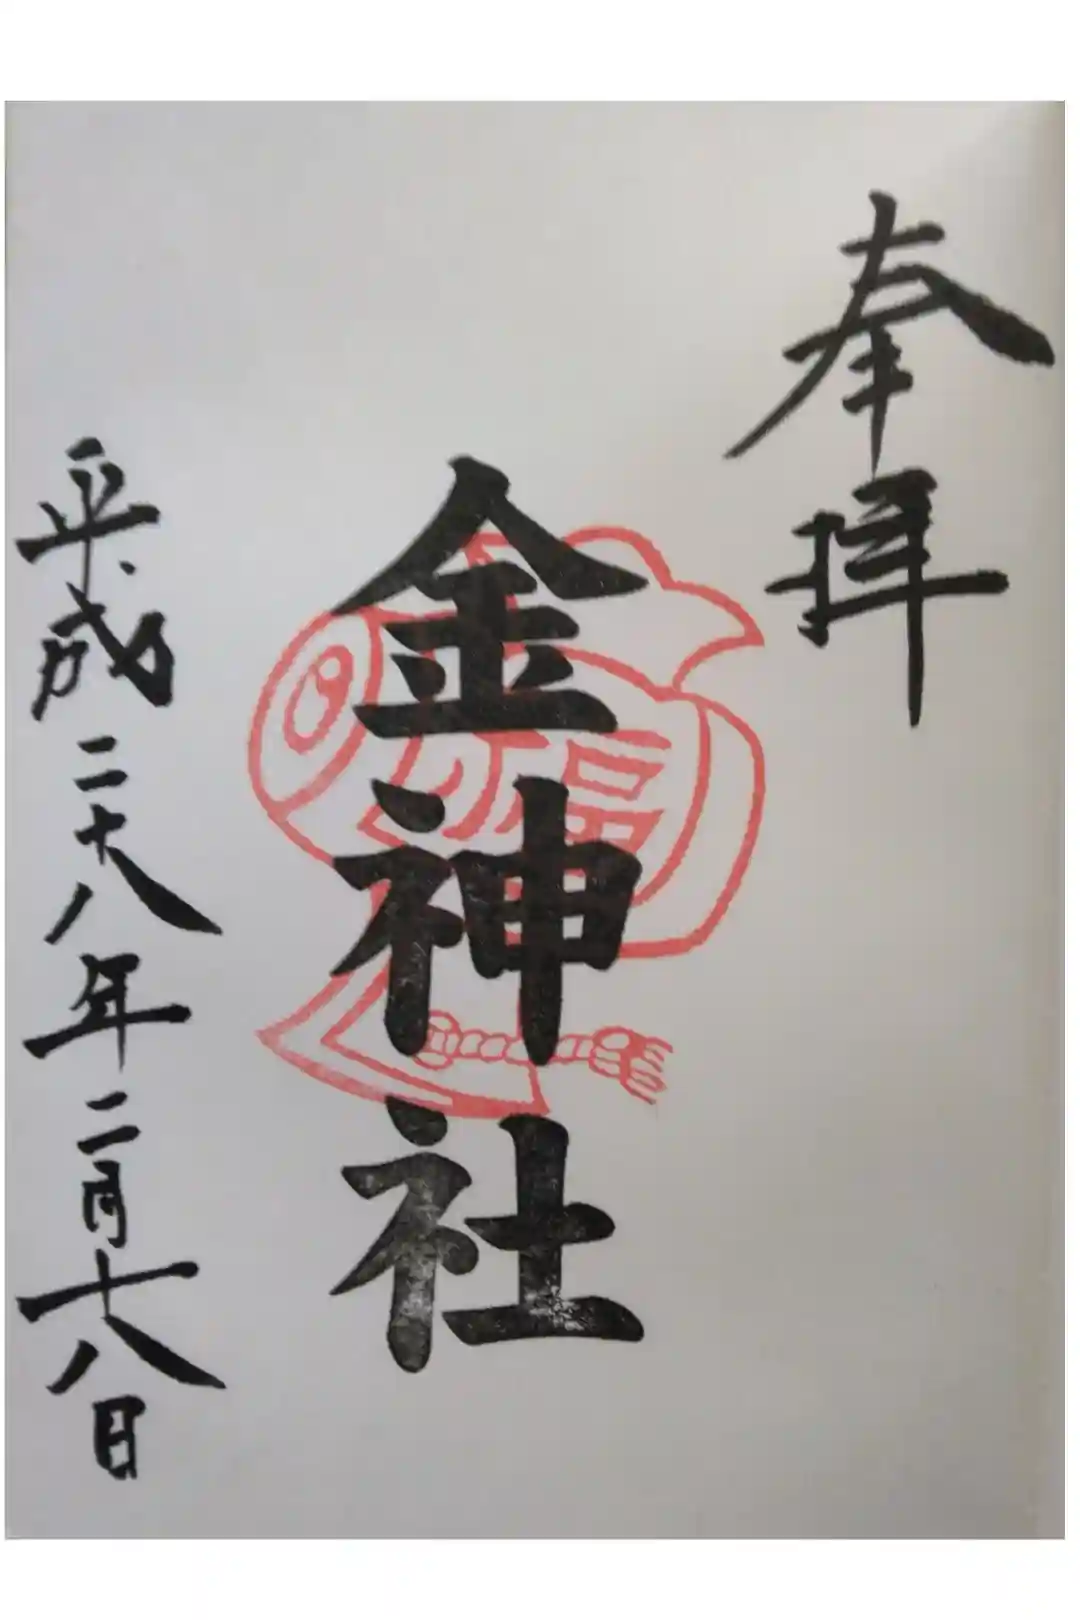 奉拝
金神社
福
平成二十八年二月十八日